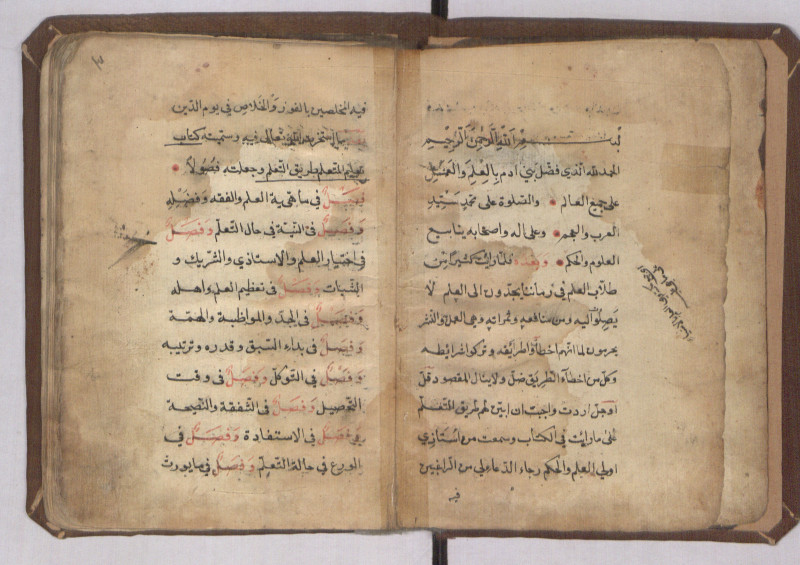 بسم الله الرحمن الرحيم
الحمد لله الذي فضل بني ادم بالعلم والعمل
على جميع العالم والصلوة على محمد سيد
العرب والعجم وعلى اله واصحابه ينابيع
العلوم والحكم وبعد فلما رأيت كثيرا من
طلاب العلم في زماننا يجدون الى العلم لا
يصلوا اليه ومن منافعه وثمراته وهي العمل والنشر
يحرمون لما انهم اخطأوا طرايقه وتركوا شرايطه
وكل من اخطأ الطريق ضل ولا ينال المقصود قل
او جل اردت واجبت ان ابين لهم طريق التعلم
على ما رأيت في الكتاب وسمعت من استاذي
اولي العلم والحكم رجاء الدعاء لي من الراغبين
فيه
فيه المخلصين بالفوز والخلاص في يوم الدين
بما استخرت الله تعالى فيه وسميته كتاب
تعليم المتعلم طريق التعلم وجعلته فصولا
فصل في ماهية العلم والفقه وفضله
وفصل في النية في حال التعلم وفصل
في اختيار العلم والاستاذي والشريك و
الثبات وفصل في تعظيم العلم واهله
وفصل في الجد والمواظبة والهمة
وفصل في بداء السبق وقدره وترتيبه
وفصل في التوكل وفصل في وقت
التحصيل وفصل في الشفقة والنصيحة
وفصل في الاستفادة وفصل في
الورع في حالة التعلم وفصل فيما يورث